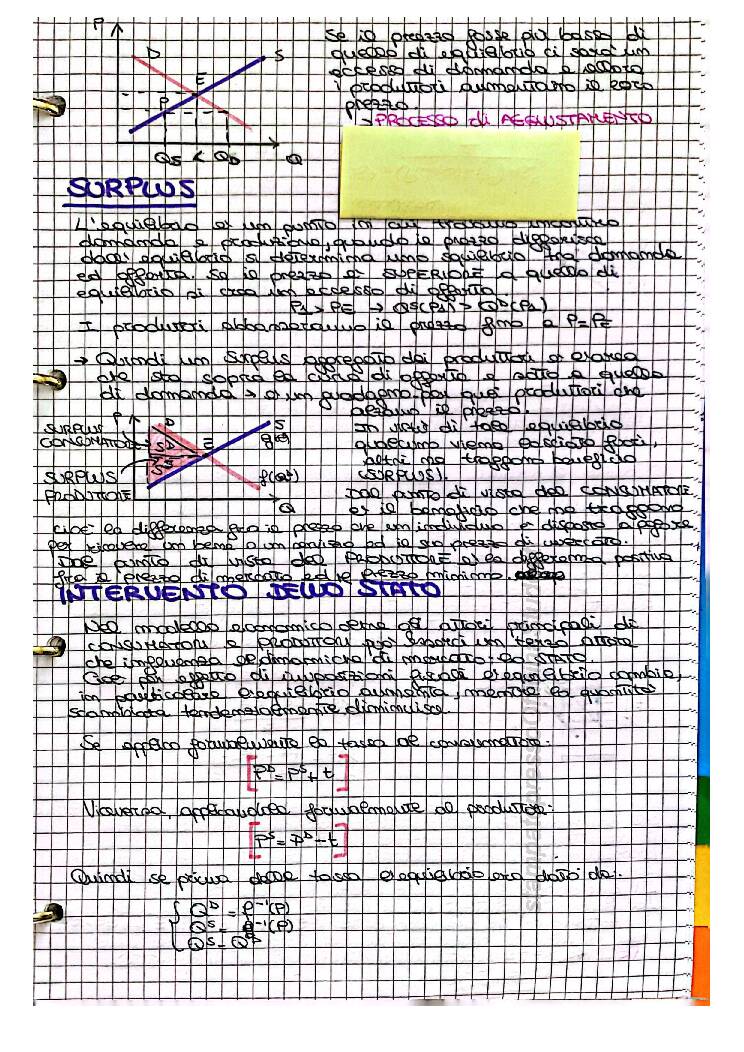 P
D
S
E
P
Qs < QD
Q
Se il prezzo fosse più basso di
quello di equilibrio ci sarà un
eccesso di domanda e allora
i produttori aumentano il loro
prezzo.
→ PROCESSO di AGGIUSTAMENTO
SURPLUS
L'equilibrio è un punto in cui trovano incontro
domanda e produzione, quando il prezzo differisce
dall'equilibrio si determina uno squilibrio tra domanda
ed offerta. Se il prezzo è SUPERIORE a quello di
equilibrio si crea un eccesso di offerta
P1 > PE → QS(P1) > QD(P1)
I produttori abbasseranno il prezzo fino a P=PE
→ Quindi un surplus aggregato dei produttori è l'area
che sta sopra la curva di offerta e sotto a quella
di domanda → è un guadagno per quei produttori che
alzano il prezzo.
P
D
S
SURPLUS
CONSUMATORE
SURPLUS
PRODUTTORE
E
Q
In virtù di tale equilibrio
qualcuno viene lasciato fuori,
altri ne traggono beneficio
(SURPLUS).
Dal punto di vista del CONSUMATORE
è il beneficio che ne traggono
cioè la differenza fra il prezzo che un individuo è disposto a pagare
per ricevere un bene o un servizio ed il suo prezzo di mercato.
Dal punto di vista del PRODUTTORE è la differenza positiva
fra il prezzo di mercato ed il prezzo minimo
INTERVENTO DELLO STATO
Nel modello economico oltre gli attori principali di
CONSUMATORI e PRODUTTORI può esserci un terzo attore
che influenza le dinamiche di mercato: lo STATO.
Cioè per effetto di imposizioni fiscali l'equilibrio cambia,
in particolare l'equilibrio aumenta, mentre la quantità
scambiata tendenzialmente diminuisce.
Se applico formalmente la tassa al consumatore:
[P^D = P^S + t]
Viceversa, applicandola formalmente al produttore:
[P^S = P^D - t]
Quindi se prima della tassa l'equilibrio era dato da:
{ Q^D = f⁻¹(P)
Q^S = g⁻¹(P)
Q^S = Q^D